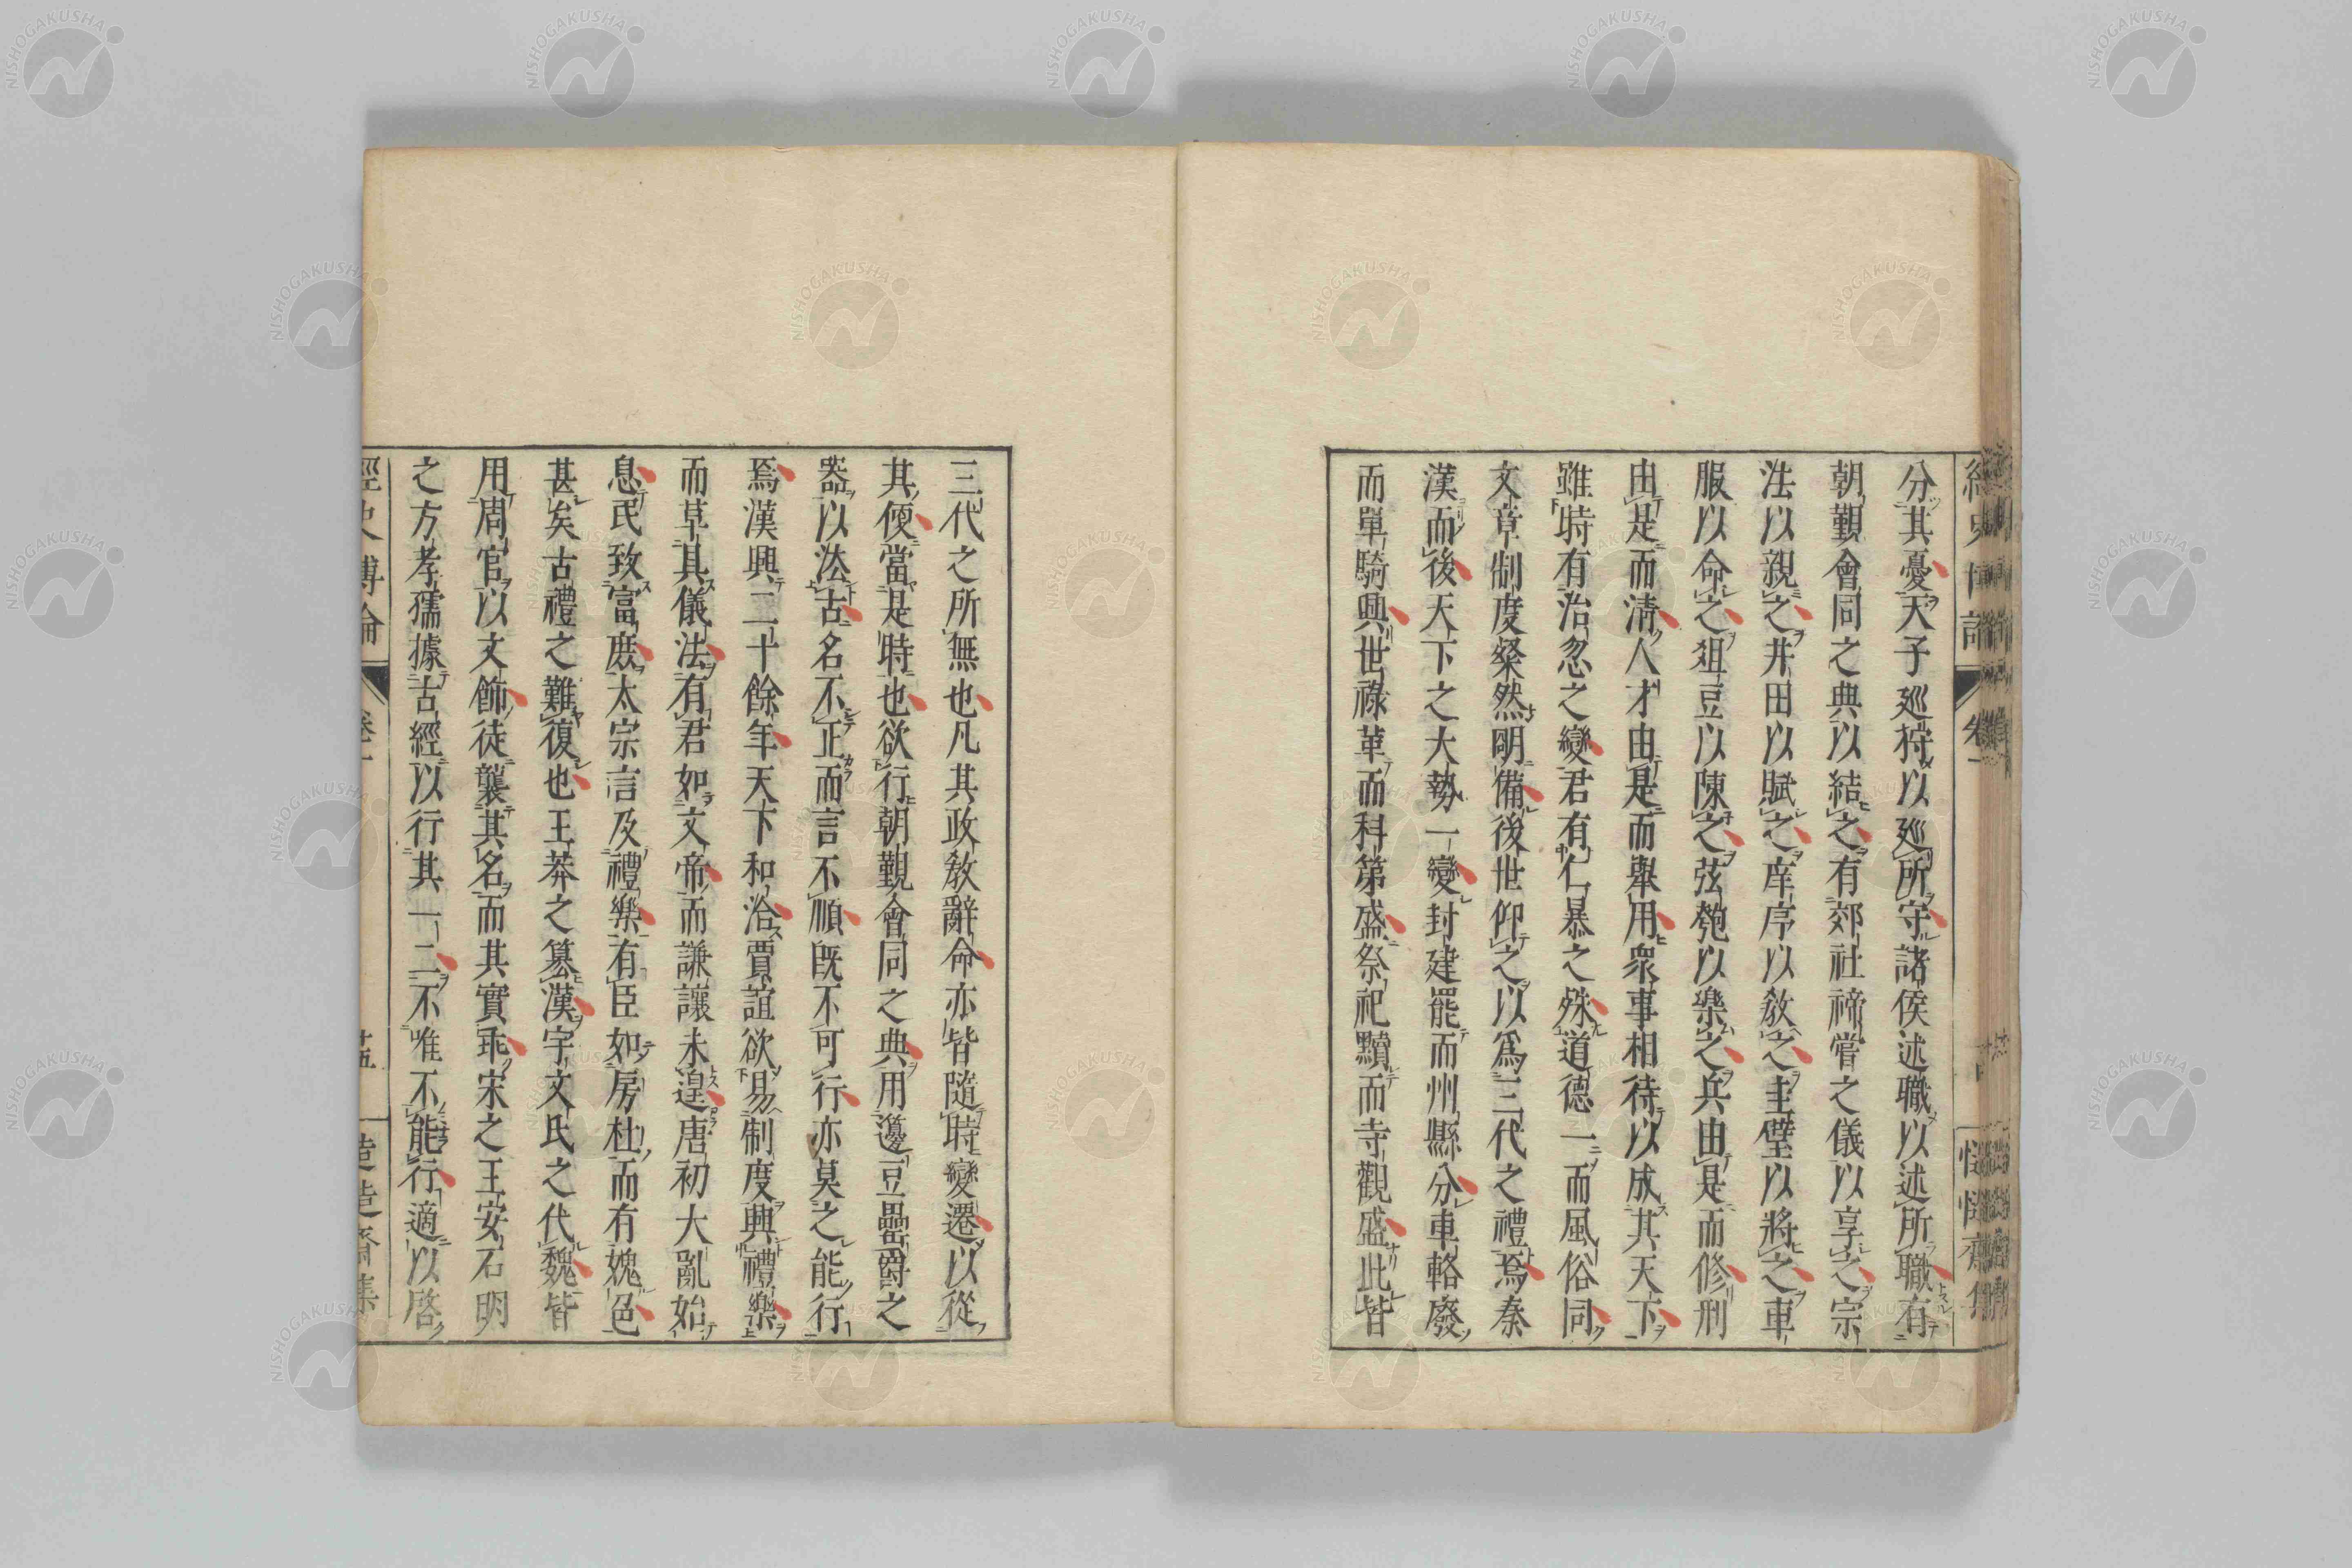 分其憂天子廵狩以廵所守諸侯述職以述所職有
朝覲會同之典以結之有郊社禘嘗之儀以享之宗
法以親之井田以賦之庠序以敎之圭璧以將之車
服以命之俎豆以陳之弦匏以樂之兵由是而修刑
由是而淸人才由是而擧用衆事相待以成其天下
雖時有治忽之變君有仁暴之殊道德一而風俗同
文章制度粲然明備後世仰之以爲三代之禮焉秦
漢而後天下之大勢一變封建罷而州縣分車輅廢
而單騎興世祿革而科第盛祭祀黷而寺觀盛此皆
三代之所無也凡其政敎辭命亦皆隨時變遷以從
其便當是時也欲行朝覲會同之典用籩豆罍爵之
器以法古名不正而言不順旣不可行亦莫之能行
焉漢興二十餘年天下和洽賈誼欲易制度興禮樂
而草其儀法有君如文帝而謙讓未遑唐初大亂始
息民致富庶太宗言及禮樂有臣如房杜而有媿色
甚矣古禮之難復也王莽之簒漢宇文氏之代魏皆
用周官以文飾徒襲其名而其實乖宋之王安石明
之方孝孺據古經以行其一二不唯不能行適以啓
經史博論
卷一
十五